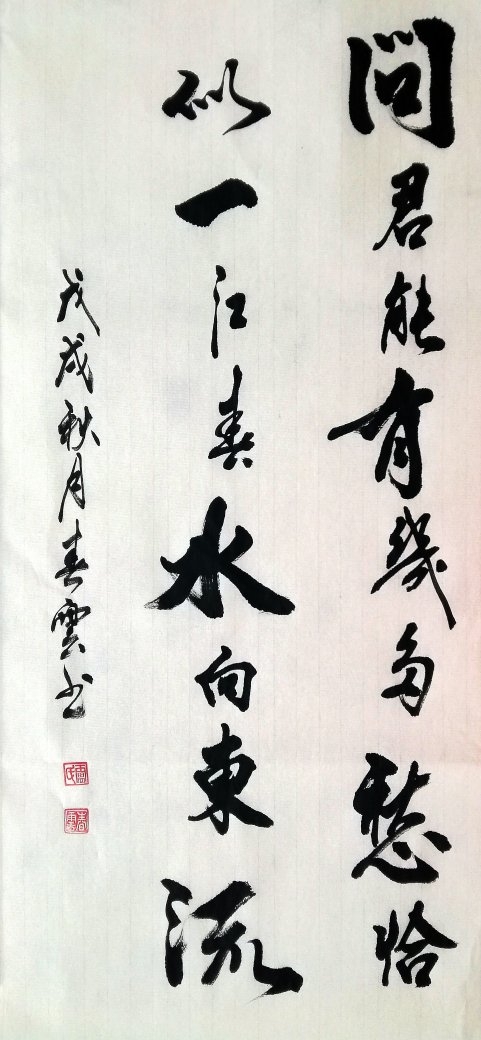 問君能有幾多愁恰
似一江春水向東流
戊戌秋月春雲书
春雲